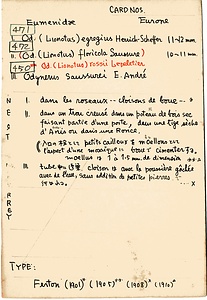 CARD NOS.
Eumenidae Europe
471
I. Od. (Lionotus) egregius Herrich-Schaffer 11-12 mm
472
II. (Od. (Lionotus) floricola Saussure) 10-11 mm
450 * Od (Lionotus) rossii Lepeletier
III Odynerus Saussurei E. André
NEST
I. dans les roseaux -- cloisons de boue --
II. dans un trou creusé dans un poteau de bois sec
faisant partie d'une porte, dans une tige sèche
d'Anis ou dans une Ronce.
petits cailloux & moellons
l'aspect d'une mosaïque boue cimenter
moellons 1 à 1.5 mm. de dimension
III tube cloison avec la poussière gâchée
avec de l'eau, sans addition de petites pierres
TYPE:
Ferton (1901) (1905) (1908) (1910)